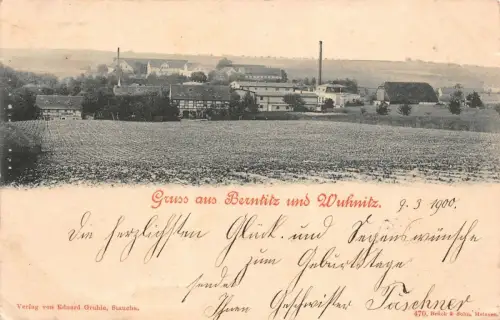 Gruss aus Berntitz und Wuhnitz.
9. 3. 1900.
Die herzlichsten Glück- und Segenswünsche
zum Geburtstage
sendet
Ihnen Geschwister Täschner
Verlag von Eduard Gruhle, Staucha.
470, Brück & Sohn, Meissen.